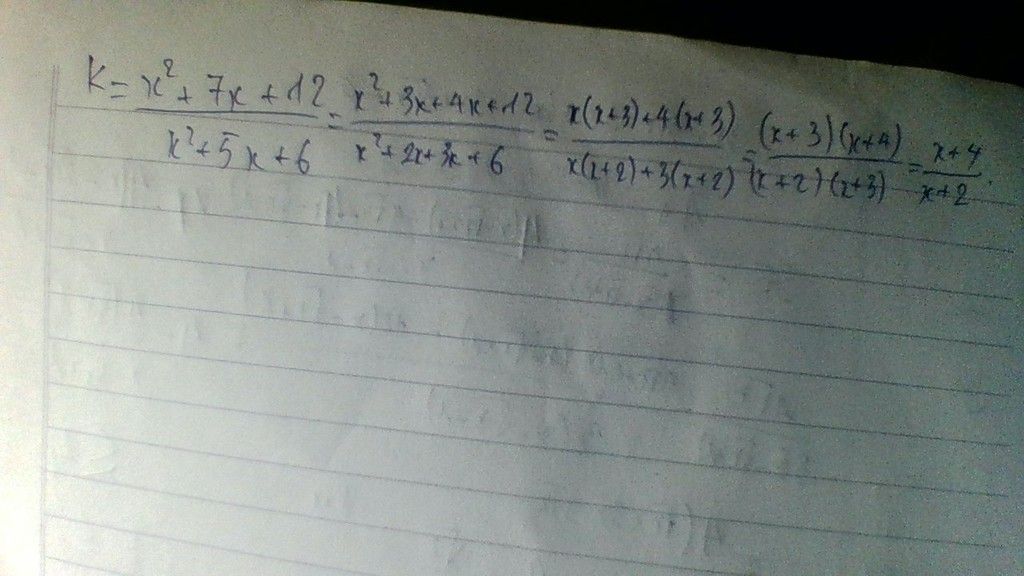 K = \frac{x^2 + 7x + 12}{x^2 + 5x + 6} = \frac{x^2 + 3x + 4x + 12}{x^2 + 2x + 3x + 6} = \frac{x(x+3) + 4(x+3)}{x(x+2) + 3(x+2)} = \frac{(x+3)(x+4)}{(x+2)(x+3)} = \frac{x+4}{x+2}.